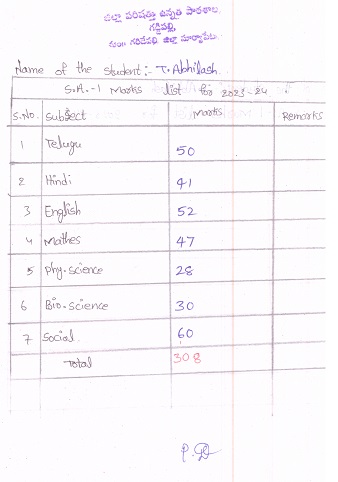 జిల్లా పరిషత్తు ఉన్నత పాఠశాల,
గడ్డిపల్లి,
మం॥ గరిడేపల్లి జిల్లా సూర్యాపేట.
Name of the student:- T. Abhilash.
S.A.-1 Marks list for 2023-24
S.No. Subject Marks Remarks
1 Telugu 50
2 Hindi 41
3 English 52
4 Mathes 47
5 Phy-science 28
6 Bio-science 30
7 Social 60
Total 308